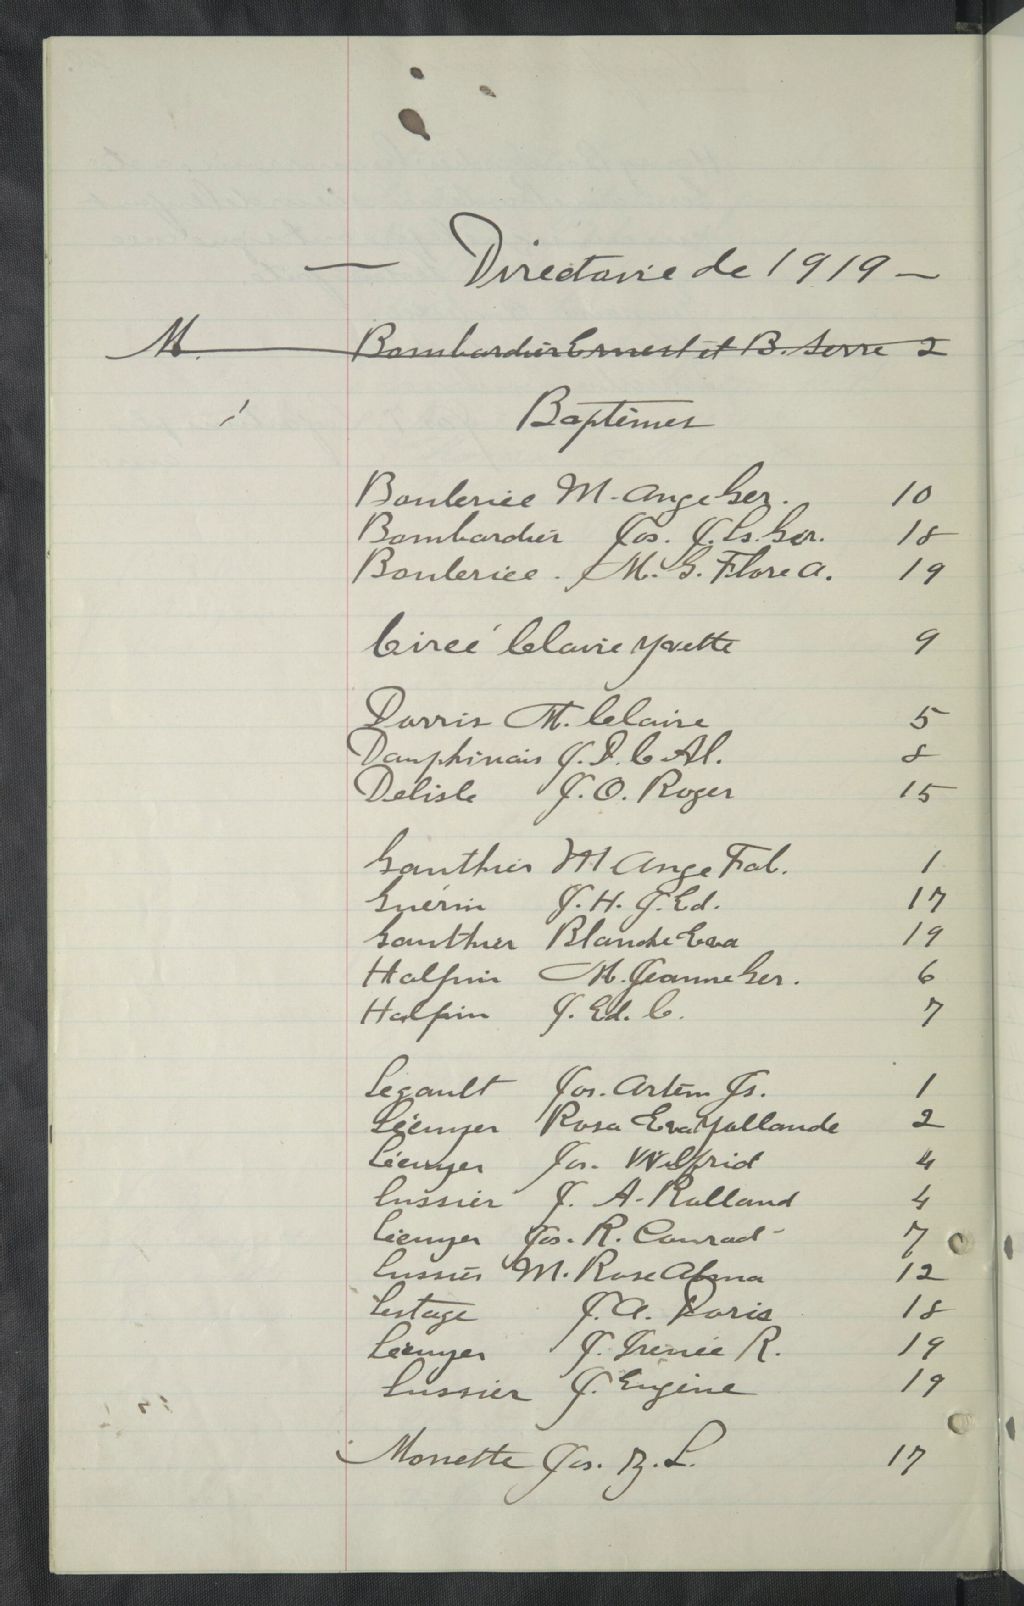 — Directoire de 1919 —
M. Bombardier Ernest et B. Serre 2
Baptêmes
Boulerice M. Ange Ger. 10
Bombardier Jos. J. Ls. Ger. 18
Boulerice. M. G. Flore A. 19
Cirée Claire Yvette 9
Dorris M. Claire 5
Dauphinais J. P. C. Al. 8
Delisle J. O. Roger 15
Gauthier M Ange Fab. 1
Guérin J. H. J. Ed. 17
Gauthier Blanche Eva 19
Halpin M. Jeanne Ger. 6
Halpin J. Ed. C. 7
Legault Jos. Artém Js. 1
Léemyer Rosa Eva Yollande 2
Léemyer Jos. Wilfrid 4
Lussier J. A. Rolland 4
Léemyer Jos. R. Conrad 7
Lussier M. Rose Alma 12
Lestage J. A. Paris 18
Léemyer J. Irenée R. 19
Lussier J. Eugène 19
Monette Jos. B. L. 17